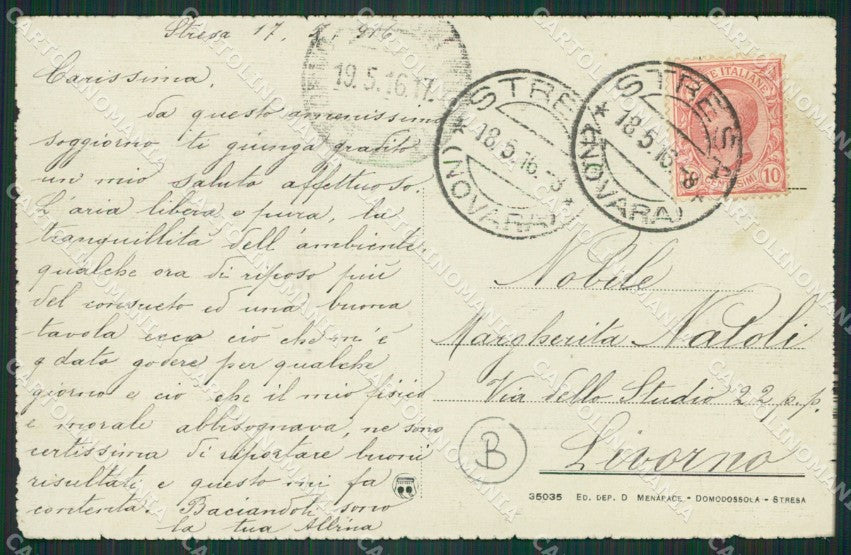 Stresa 17. 5. 916
Carissima,
da questo amenissimo
soggiorno ti giunga gradito
un mio saluto affettuoso.
L'aria libera e pura, la
tranquillità dell'ambiente,
qualche ora di riposo più
del consueto ed una buona
tavola ecco ciò che m'è
dato godere per qualche
giorno e ciò che il mio fisico
e morale abbisognava, ne sono
certissima di riportare buoni
risultati e questo mi fa
contenta. Baciandoti sono
la tua
19.5.16.17
STRE
18.5.16.-8
(NOVARA)
STRESA
18.5.16.-8
(NOVARA)
E ITALIANE
10
Nobile
Margherita Natoli
Via dello Studio 22 p.p.
Livorno
B
35035 ED. DEP. D MENAFACE - DOMODOSSOLA - STRESA
CARTOLINOMANIA